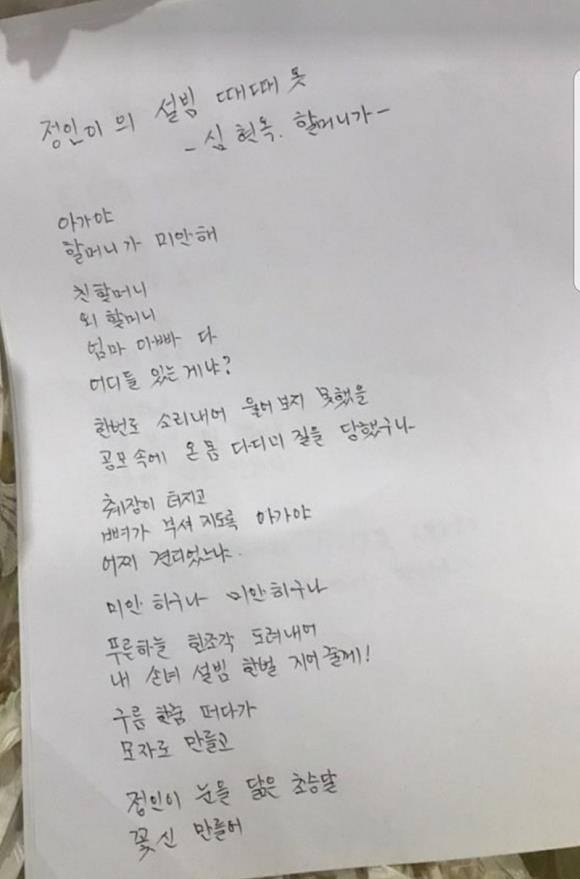 정인이의 설빔 때때옷
- 심현옥. 할머니가 -
아가야
할머니가 미안해
친할머니
외할머니
엄마 아빠 다
어디들 있는게냐?
한번도 소리내어 울어 보지 못했을
공포 속에 온 몸 다디미 질을 당했구나
췌장이 터지고
뼈가 부셔 지도록 아가야
어찌 견디었느냐.
미안 하구나 미안 하구나
푸른하늘 한조각 도려내어
내 손녀 설빔 한벌 지어줄께!
구름 한줌 떠다가
모자로 만들고
정인이 눈을 닮은 초승달
꽃신 만들어